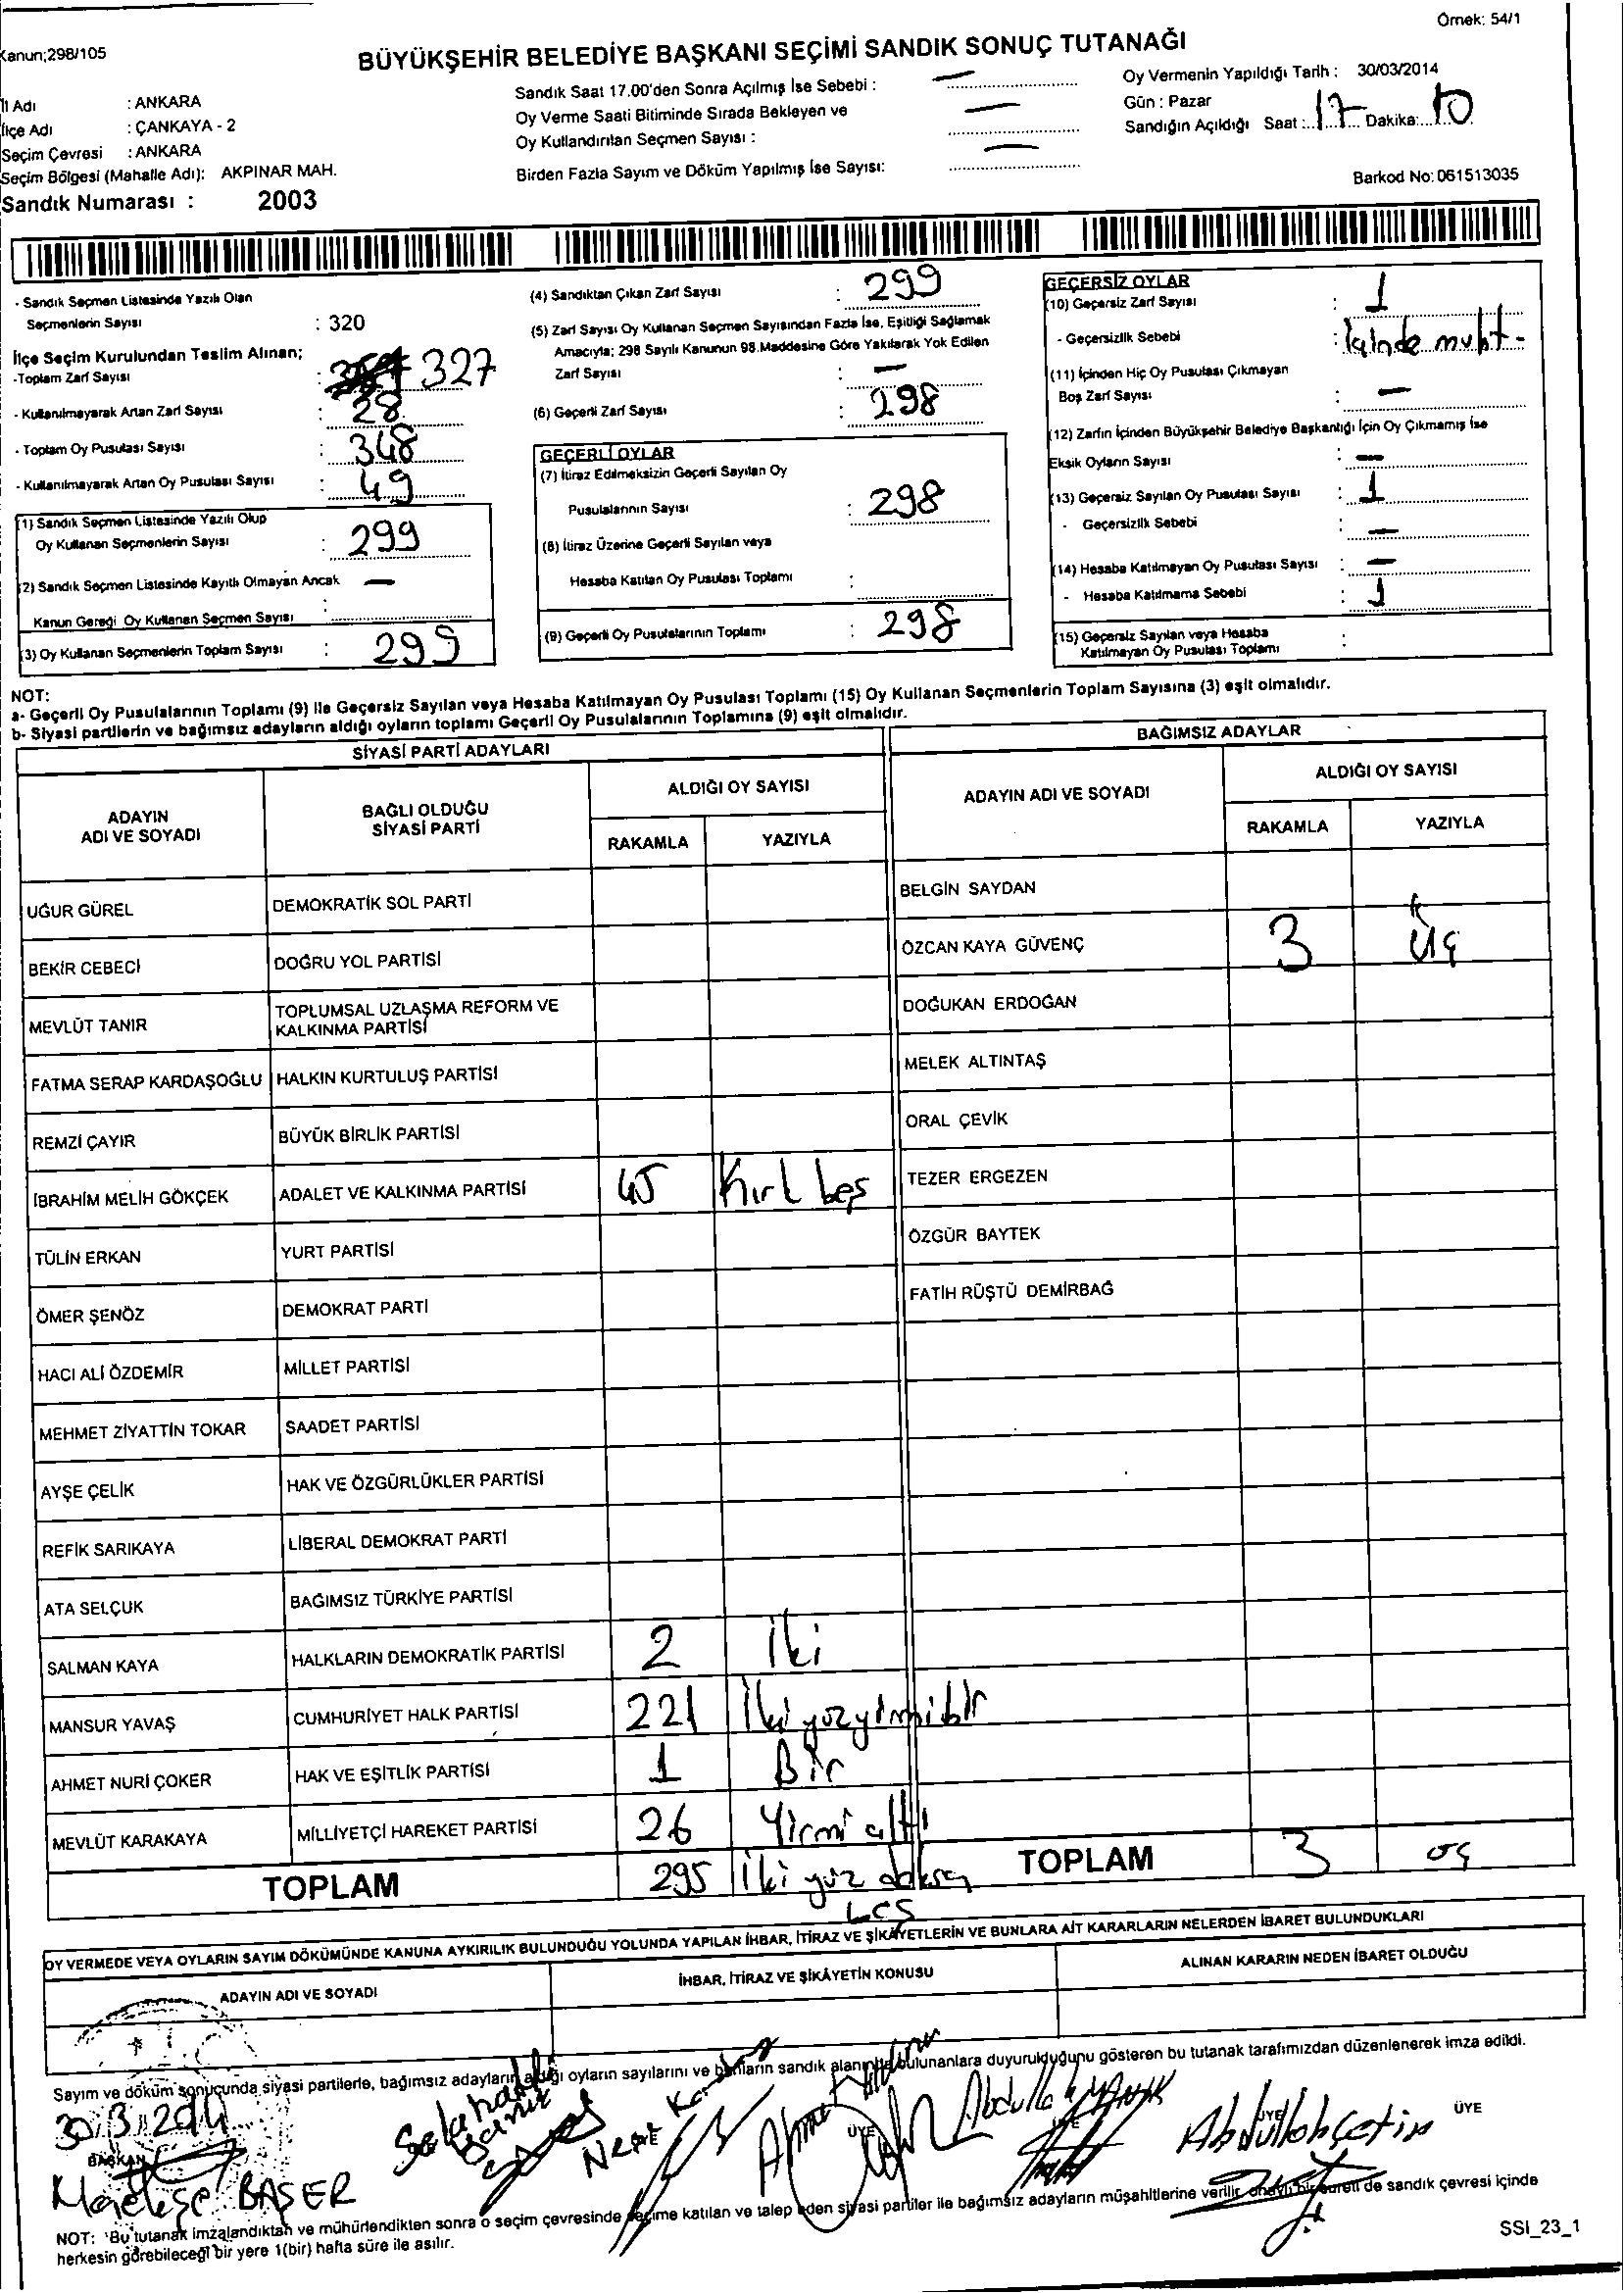 Örnek: 54/1
Kanun;298/105
BÜYÜKŞEHİR BELEDİYE BAŞKANI SEÇİMİ SANDIK SONUÇ TUTANAĞI
İl Adı : ANKARA
İlçe Adı : ÇANKAYA - 2
Seçim Çevresi : ANKARA
Seçim Bölgesi (Mahalle Adı): AKPINAR MAH.
Sandık Numarası : 2003
Sandık Saat 17.00'den Sonra Açılmış İse Sebebi : —
Oy Verme Saati Bitiminde Sırada Bekleyen ve —
Oy Kullandırılan Seçmen Sayısı :
Birden Fazla Sayım ve Döküm Yapılmış İse Sayısı: —
Oy Vermenin Yapıldığı Tarih : 30/03/2014
Gün : Pazar
Sandığın Açıldığı Saat : 17 Dakika: 10
Barkod No: 061513035
- Sandık Seçmen Listesinde Yazılı Olan
Seçmenlerin Sayısı : 320
İlçe Seçim Kurulundan Teslim Alınan;
-Toplam Zarf Sayısı : 327
- Kullanılmayarak Artan Zarf Sayısı : 28
- Toplam Oy Pusulası Sayısı : 348
- Kullanılmayarak Artan Oy Pusulası Sayısı : 49
(1) Sandık Seçmen Listesinde Yazılı Olup
Oy Kullanan Seçmenlerin Sayısı : 299
(2) Sandık Seçmen Listesinde Kayıtlı Olmayan Ancak —
Kanun Gereği Oy Kullanan Seçmen Sayısı :
(3) Oy Kullanan Seçmenlerin Toplam Sayısı : 299
(4) Sandıktan Çıkan Zarf Sayısı : 299
(5) Zarf Sayısı Oy Kullanan Seçmen Sayısından Fazla İse, Eşitliği Sağlamak
Amacıyla; 298 Sayılı Kanunun 98.Maddesine Göre Yakılarak Yok Edilen
Zarf Sayısı : —
(6) Geçerli Zarf Sayısı : 298
GEÇERLİ OYLAR
(7) İtiraz Edilmeksizin Geçerli Sayılan Oy
Pusulalarının Sayısı : 298
(8) İtiraz Üzerine Geçerli Sayılan veya
Hesaba Katılan Oy Pusulası Toplamı :
(9) Geçerli Oy Pusulalarının Toplamı : 298
GEÇERSİZ OYLAR
(10) Geçersiz Zarf Sayısı : 1
- Geçersizlik Sebebi : İçinde muht-
(11) İçinden Hiç Oy Pusulası Çıkmayan
Boş Zarf Sayısı : —
(12) Zarfın İçinden Büyükşehir Belediye Başkanlığı İçin Oy Çıkmamış İse
Eksik Oyların Sayısı : —
(13) Geçersiz Sayılan Oy Pusulası Sayısı : 1
- Geçersizlik Sebebi : —
(14) Hesaba Katılmayan Oy Pusulası Sayısı : —
- Hesaba Katılmama Sebebi : 1
(15) Geçersiz Sayılan veya Hesaba
Katılmayan Oy Pusulası Toplamı :
NOT:
a- Geçerli Oy Pusulalarının Toplamı (9) ile Geçersiz Sayılan veya Hesaba Katılmayan Oy Pusulası Toplamı (15) Oy Kullanan Seçmenlerin Toplam Sayısına (3) eşit olmalıdır.
b- Siyasi partilerin ve bağımsız adayların aldığı oyların toplamı Geçerli Oy Pusulalarının Toplamına (9) eşit olmalıdır.
SİYASİ PARTİ ADAYLARI
ADAYIN ADI VE SOYADI
BAĞLI OLDUĞU SİYASİ PARTİ
ALDIĞI OY SAYISI
RAKAMLA YAZIYLA
UĞUR GÜREL DEMOKRATİK SOL PARTİ
BEKİR CEBECİ DOĞRU YOL PARTİSİ
MEVLÜT TANIR TOPLUMSAL UZLAŞMA REFORM VE KALKINMA PARTİSİ
FATMA SERAP KARDAŞOĞLU HALKIN KURTULUŞ PARTİSİ
REMZİ ÇAYIR BÜYÜK BİRLİK PARTİSİ
İBRAHİM MELİH GÖKÇEK ADALET VE KALKINMA PARTİSİ 45 Kırk beş
TÜLİN ERKAN YURT PARTİSİ
ÖMER ŞENÖZ DEMOKRAT PARTİ
HACI ALİ ÖZDEMİR MİLLET PARTİSİ
MEHMET ZİYATTİN TOKAR SAADET PARTİSİ
AYŞE ÇELİK HAK VE ÖZGÜRLÜKLER PARTİSİ
REFİK SARIKAYA LİBERAL DEMOKRAT PARTİ
ATA SELÇUK BAĞIMSIZ TÜRKİYE PARTİSİ
SALMAN KAYA HALKLARIN DEMOKRATİK PARTİSİ 2 İki
MANSUR YAVAŞ CUMHURİYET HALK PARTİSİ 221 İki yüzyirmibir
AHMET NURİ ÇOKER HAK VE EŞİTLİK PARTİSİ 1 Bir
MEVLÜT KARAKAYA MİLLİYETÇİ HAREKET PARTİSİ 26 Yirmi altı
TOPLAM 295 İki yüz doksan beş
BAĞIMSIZ ADAYLAR
ADAYIN ADI VE SOYADI
ALDIĞI OY SAYISI
RAKAMLA YAZIYLA
BELGİN SAYDAN
ÖZCAN KAYA GÜVENÇ 3 Üç
DOĞUKAN ERDOĞAN
MELEK ALTINTAŞ
ORAL ÇEVİK
TEZER ERGEZEN
ÖZGÜR BAYTEK
FATİH RÜŞTÜ DEMİRBAĞ
TOPLAM 3 üç
OY VERMEDE VEYA OYLARIN SAYIM DÖKÜMÜNDE KANUNA AYKIRILIK BULUNDUĞU YOLUNDA YAPILAN İHBAR, İTİRAZ VE ŞİKÂYETLERİN VE BUNLARA AİT KARARLARIN NELERDEN İBARET BULUNDUKLARI
ADAYIN ADI VE SOYADI
İHBAR, İTİRAZ VE ŞİKÂYETİN KONUSU
ALINAN KARARIN NEDEN İBARET OLDUĞU
Sayım ve döküm sonucunda siyasi partilerle, bağımsız adayların aldığı oyların sayılarını ve bunların sandık alanında bulunanlara duyurulduğunu gösteren bu tutanak tarafımızdan düzenlenerek imza edildi.
30/3/2014
BAŞKAN
BAŞER
ÜYE
ÜYE
ÜYE
ÜYE
Abdullah Çetin
NOT: Bu tutanak imzalandıktan ve mühürlendikten sonra o seçim çevresinde seçime katılan ve talep eden siyasi partiler ile bağımsız adayların müşahitlerine verilir, onaylı bir sureti de sandık çevresi içinde
herkesin görebileceği bir yere 1(bir) hafta süre ile asılır.
SSI_23_1